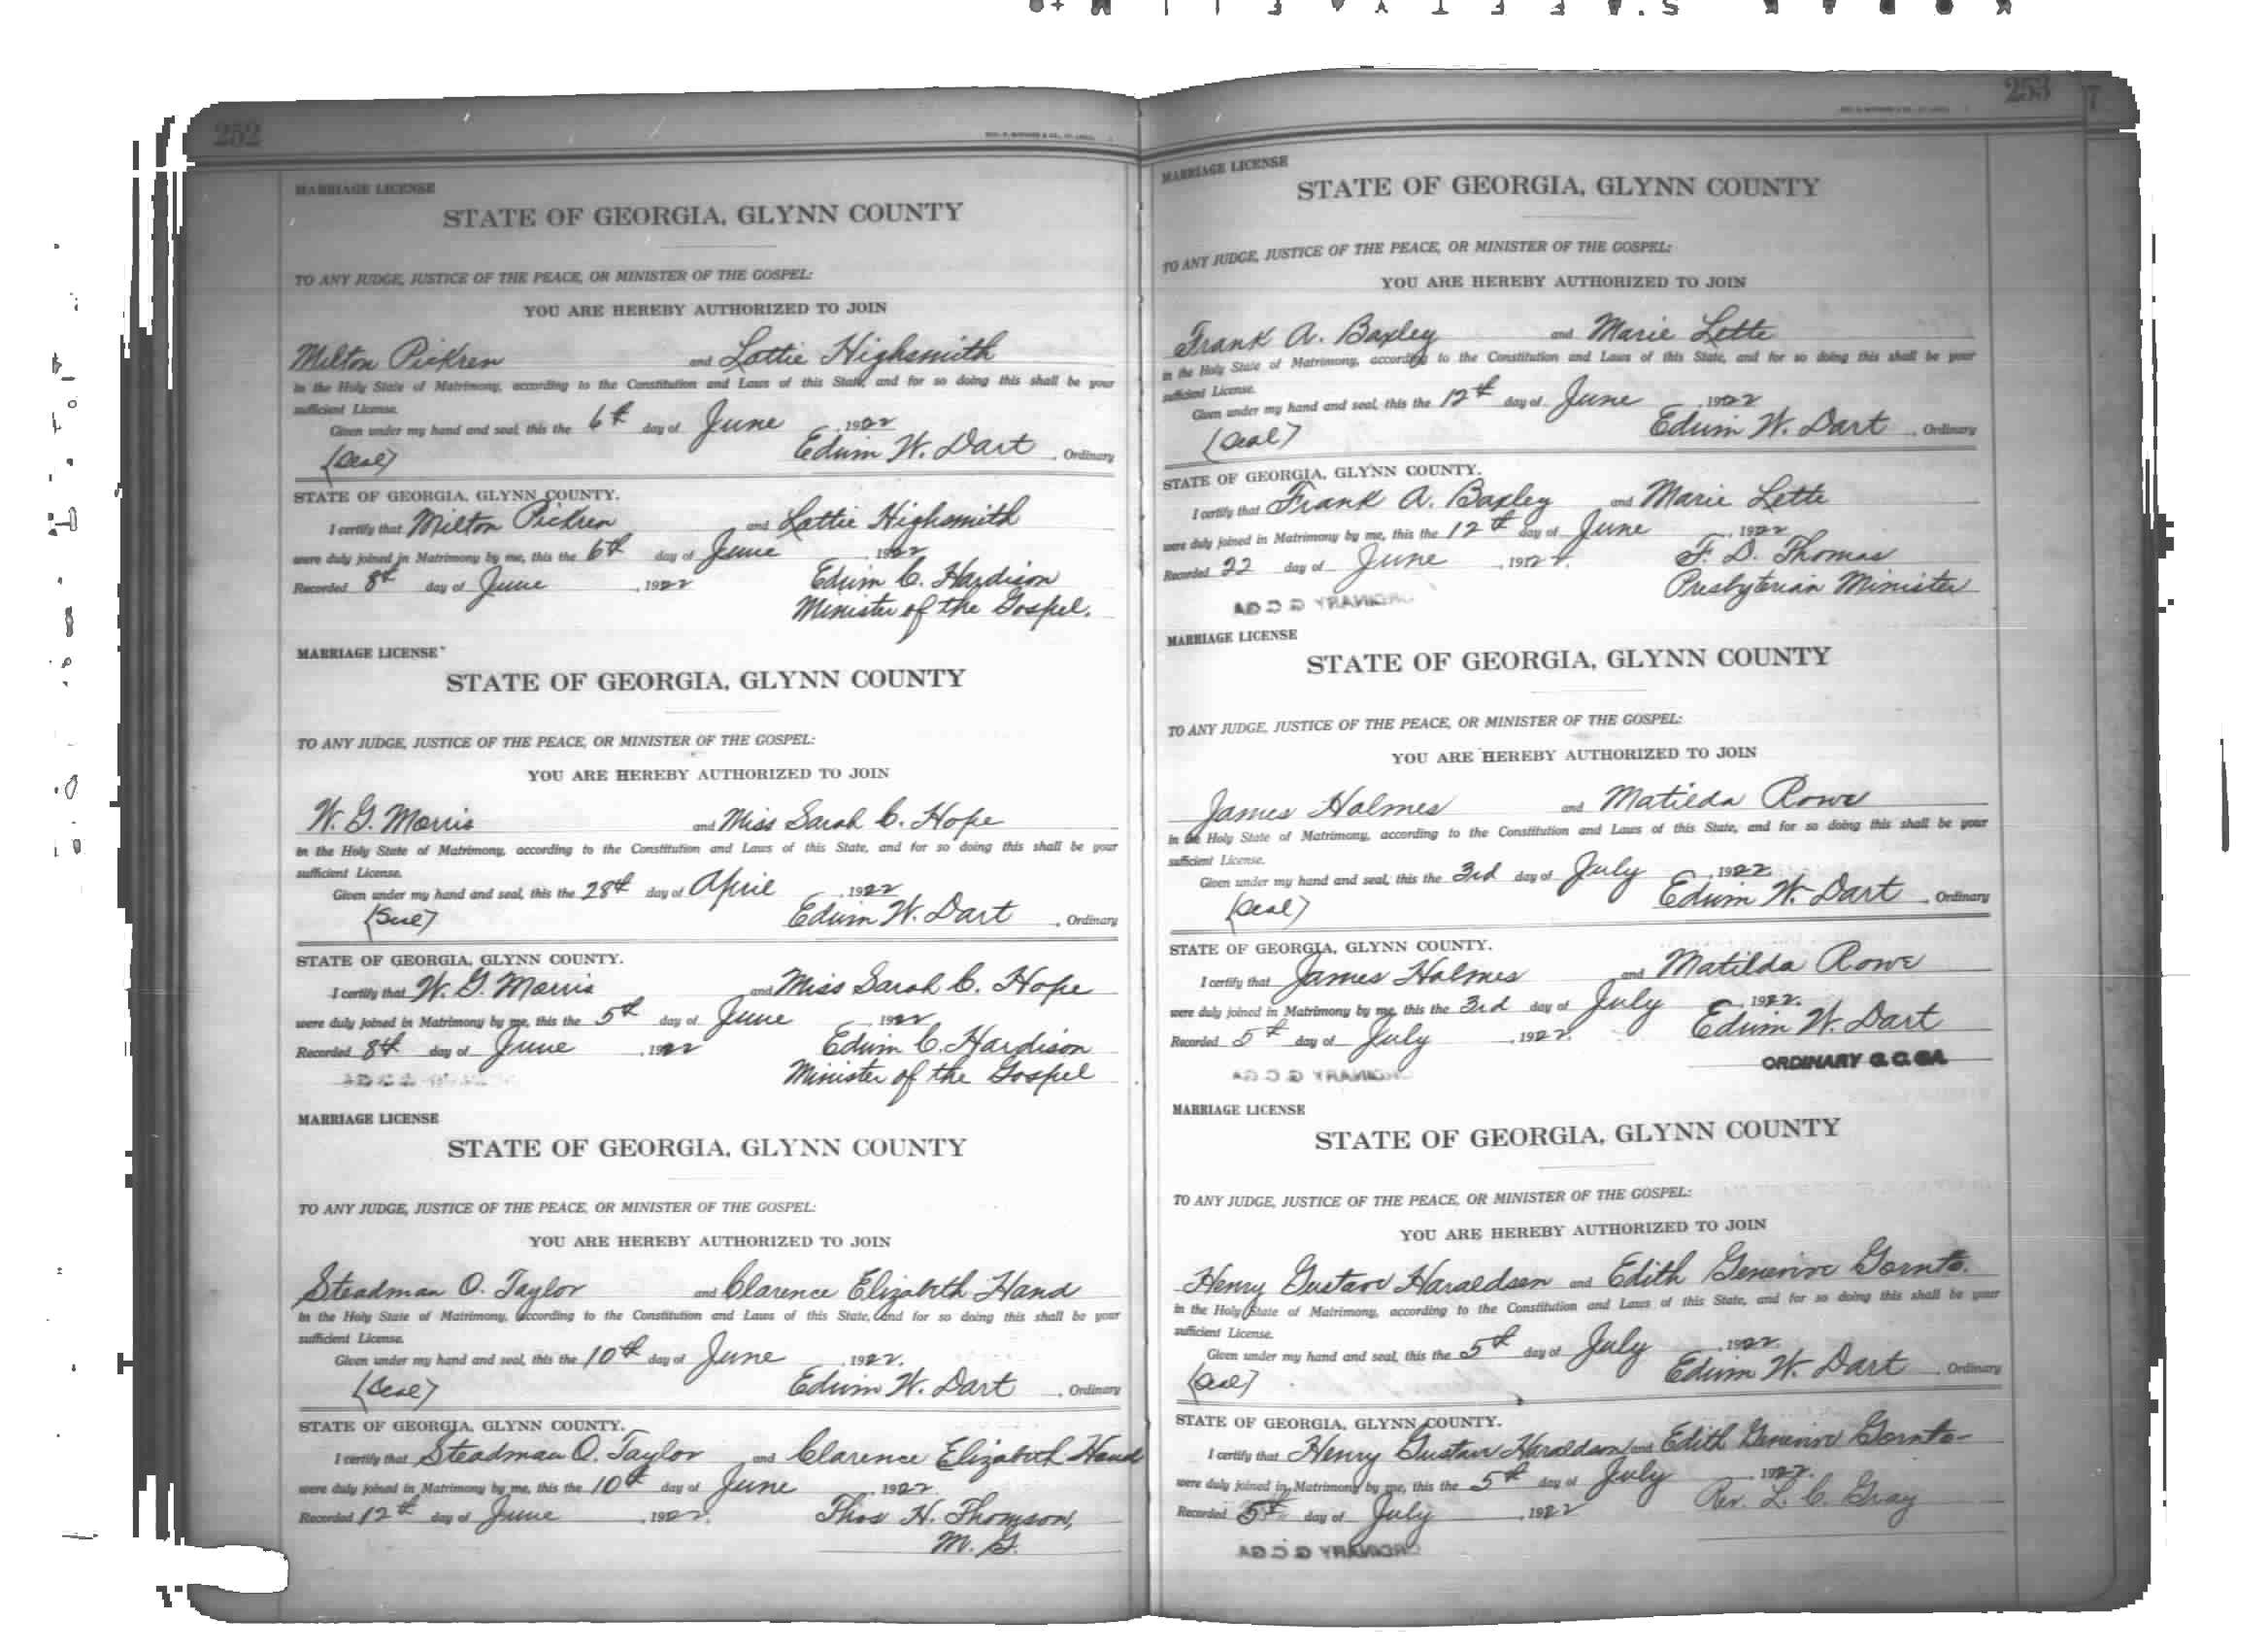 252
MARRIAGE LICENSE
STATE OF GEORGIA, GLYNN COUNTY
TO ANY JUDGE, JUSTICE OF THE PEACE, OR MINISTER OF THE GOSPEL:
YOU ARE HEREBY AUTHORIZED TO JOIN
Milton Pickren and Lottie Highsmith
in the Holy State of Matrimony, according to the Constitution and Laws of this State, and for so doing this shall be your
sufficient License.
Given under my hand and seal, this the 6th day of June, 1922
(Seal) Edwin W. Dart, Ordinary
STATE OF GEORGIA, GLYNN COUNTY.
I certify that Milton Pickren and Lottie Highsmith
were duly joined in Matrimony by me, this the 6th day of June, 1922
Recorded 8th day of June, 1922 Edwin C. Hardison
Minister of the Gospel.
MARRIAGE LICENSE
STATE OF GEORGIA, GLYNN COUNTY
TO ANY JUDGE, JUSTICE OF THE PEACE, OR MINISTER OF THE GOSPEL:
YOU ARE HEREBY AUTHORIZED TO JOIN
W. G. Morris and Miss Sarah C. Hope
in the Holy State of Matrimony, according to the Constitution and Laws of this State, and for so doing this shall be your
sufficient License.
Given under my hand and seal, this the 28th day of April, 1922
(Seal) Edwin W. Dart, Ordinary
STATE OF GEORGIA, GLYNN COUNTY.
I certify that W. G. Morris and Miss Sarah C. Hope
were duly joined in Matrimony by me, this the 5th day of June, 1922
Recorded 8th day of June, 1922 Edwin C. Hardison
Minister of the Gospel
MARRIAGE LICENSE
STATE OF GEORGIA, GLYNN COUNTY
TO ANY JUDGE, JUSTICE OF THE PEACE, OR MINISTER OF THE GOSPEL:
YOU ARE HEREBY AUTHORIZED TO JOIN
Steadman O. Taylor and Clarence Elizabeth Hand
in the Holy State of Matrimony, according to the Constitution and Laws of this State, and for so doing this shall be your
sufficient License.
Given under my hand and seal, this the 10th day of June, 1922.
(Seal) Edwin W. Dart, Ordinary
STATE OF GEORGIA, GLYNN COUNTY.
I certify that Steadman O. Taylor and Clarence Elizabeth Hand
were duly joined in Matrimony by me, this the 10th day of June, 1922.
Recorded 12th day of June, 1922. Thos H. Thomson,
M. G.
253
MARRIAGE LICENSE
STATE OF GEORGIA, GLYNN COUNTY
TO ANY JUDGE, JUSTICE OF THE PEACE, OR MINISTER OF THE GOSPEL:
YOU ARE HEREBY AUTHORIZED TO JOIN
Frank A. Baxley and Marie Lette
in the Holy State of Matrimony, according to the Constitution and Laws of this State, and for so doing this shall be your
sufficient License.
Given under my hand and seal, this the 12th day of June, 1922
(Seal) Edwin W. Dart, Ordinary
STATE OF GEORGIA, GLYNN COUNTY.
I certify that Frank A. Baxley and Marie Lette
were duly joined in Matrimony by me, this the 12th day of June, 1922
Recorded 22 day of June, 1922. F. D. Thomas
Presbyterian Minister
MARRIAGE LICENSE
STATE OF GEORGIA, GLYNN COUNTY
TO ANY JUDGE, JUSTICE OF THE PEACE, OR MINISTER OF THE GOSPEL:
YOU ARE HEREBY AUTHORIZED TO JOIN
James Holmes and Matilda Rowe
in the Holy State of Matrimony, according to the Constitution and Laws of this State, and for so doing this shall be your
sufficient License.
Given under my hand and seal, this the 3rd day of July, 1922
(Seal) Edwin W. Dart, Ordinary
STATE OF GEORGIA, GLYNN COUNTY.
I certify that James Holmes and Matilda Rowe
were duly joined in Matrimony by me, this the 3rd day of July, 1922.
Recorded 5th day of July, 1922. Edwin W. Dart
ORDINARY G. C. GA.
MARRIAGE LICENSE
STATE OF GEORGIA, GLYNN COUNTY
TO ANY JUDGE, JUSTICE OF THE PEACE, OR MINISTER OF THE GOSPEL:
YOU ARE HEREBY AUTHORIZED TO JOIN
Henry Gustave Haraldsen and Edith Genevive Gornto.
in the Holy State of Matrimony, according to the Constitution and Laws of this State, and for so doing this shall be your
sufficient License.
Given under my hand and seal, this the 5th day of July, 1922.
(Seal) Edwin W. Dart, Ordinary
STATE OF GEORGIA, GLYNN COUNTY.
I certify that Henry Gustave Haraldsen and Edith Genevive Gornto
were duly joined in Matrimony by me, this the 5th day of July, 1922.
Recorded 5th day of July, 1922 Rev. L. C. Gray